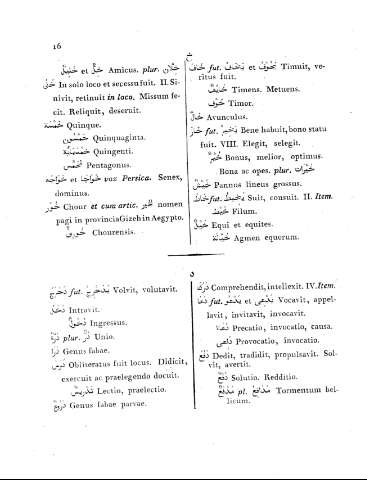 16
خَلِيلٌ et خِلٌّ Amicus. plur. خُلَّان
خَلَى In solo loco et secessu fuit. II. Si-
nivit, retinuit in loco. Missum fe-
cit. Reliquit, deseruit.
خَمْسَة Quinque.
خَمْسُون Quinquaginta.
خَمْسُمِايَة Quingenti.
مُخَمَّس Pentagonus.
خَوَاجَه et خَوَاجَا vox Persica. Senex,
dominus.
خَوْر Chour et cum artic. nomen
pagi in provincia Gizeh in Aegypto.
خَوْرِيّ Chourensis.
خ
خَافَ fut. يَخَافُ et يَخُوفُ Timuit, ve-
ritus fuit.
خَايِفٌ Timens. Metuens.
خَوْف Timor.
خَالٌ Avunculus.
خَارَ fut. يَخِيرُ Bene habuit, bono statu
fuit. VIII. Elegit, selegit.
خَيْرٌ Bonus, melior, optimus.
Bona ac opes. plur. خَيْرَات
خَيْشٌ Pannus lineus grossus.
خَاطَ fut. يَخِيطُ Suit, consuit. II. Item.
خَيْطٌ Filum.
خَيْلٌ Equi et equites.
خَيَّالَة Agmen equorum.
د
دَحْرَجَ fut. يُدَحْرِجُ Volvit, volutavit.
دَخَلَ Intravit.
دُخُولٌ Ingressus.
دُرَّة plur. دُرّ Unio.
دُرَا Genus fabae.
دَرَسَ Obliteratus fuit locus. Didicit,
exercuit ac praelegendo docuit.
تَدْرِيسٌ Lectio, praelectio.
Genus fabae parvae.
دَرَكَ Comprehendit, intellexit. IV. Item.
دَعَا fut. يَدْعُو et يَدْعِى Vocavit, appel-
lavit, invitavit, invocavit.
دُعَاء Precatio, invocatio, causa.
دَعْوَى Provocatio, invocatio.
دَفَعَ Dedit, tradidit, propulsavit. Sol-
vit, avertit.
دَفْعٌ Solutio. Redditio.
مِدْفَعٌ pl. مَدَافِعُ Tormentum bel-
licum.